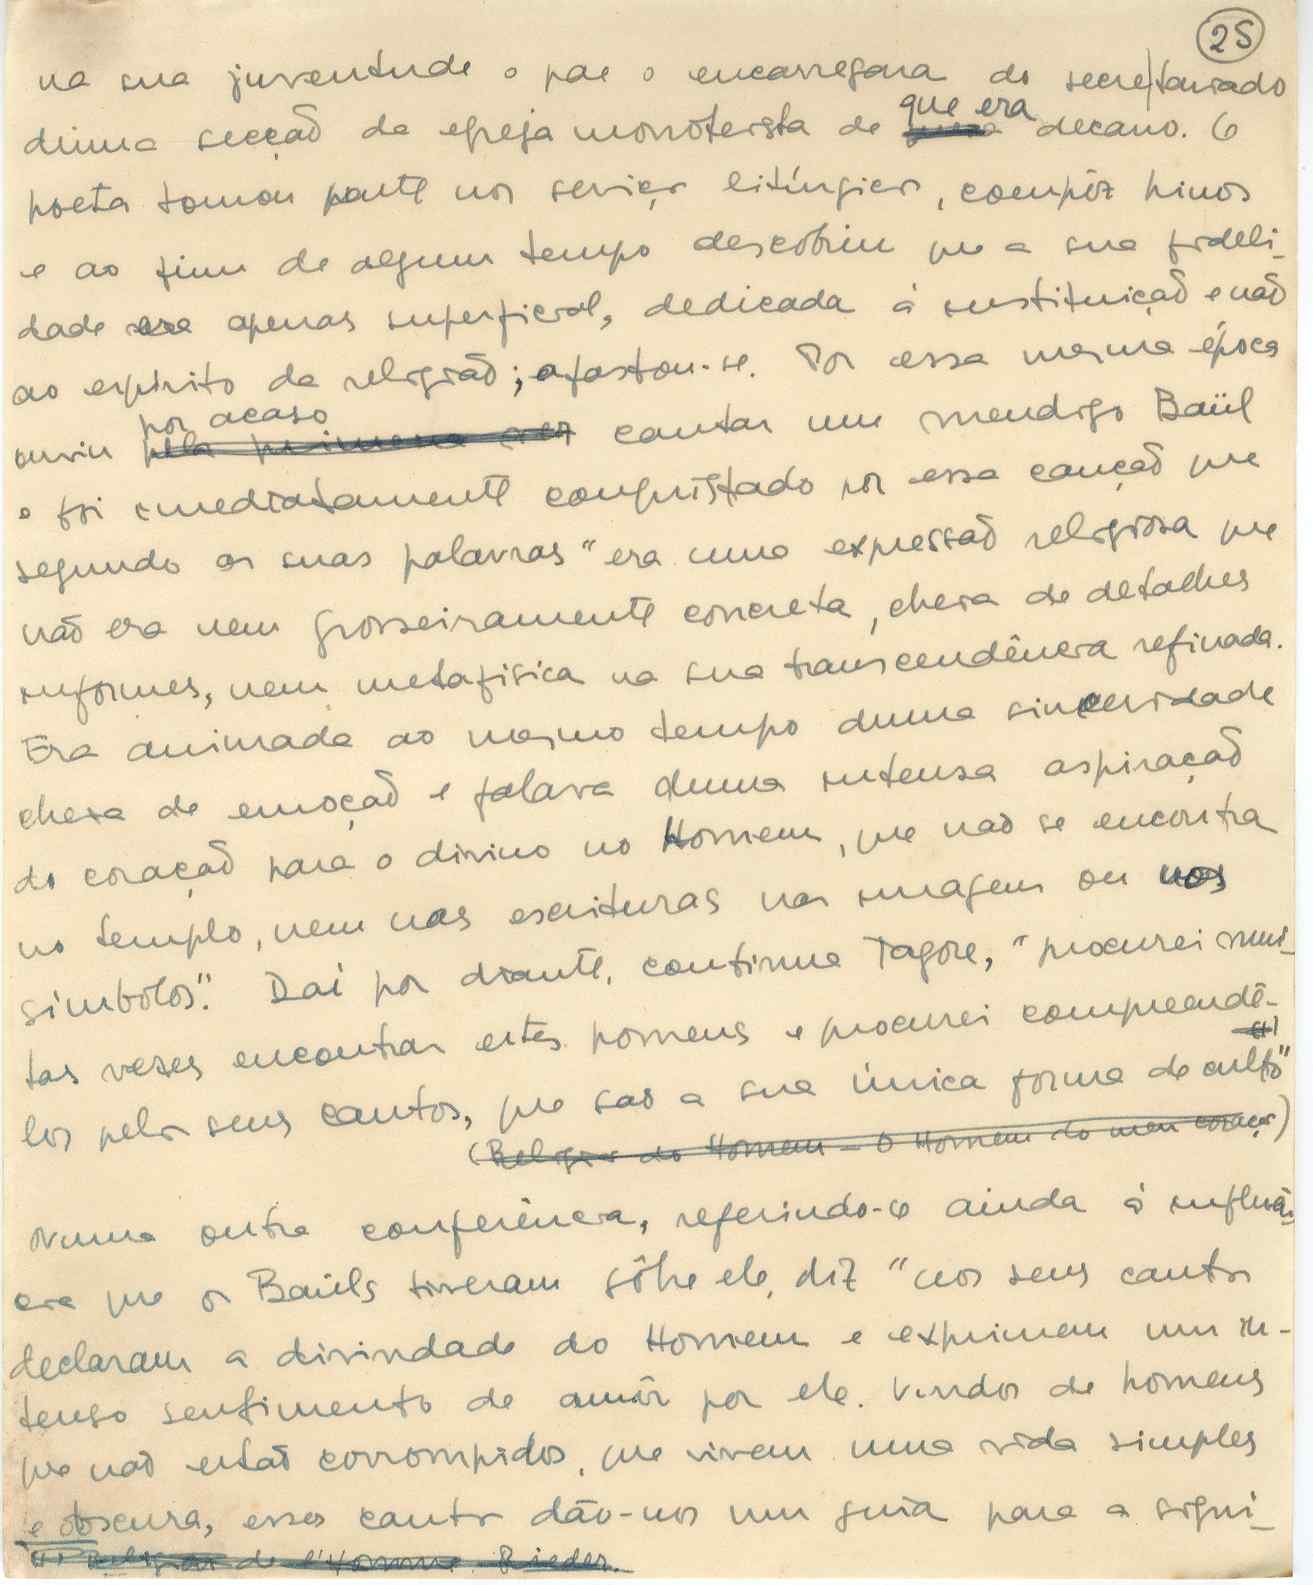 25
na sua juventude o pae o encarregara do secretariado
que era
duma secção da egreja monoteista de decano. O
poeta tomou parte nos serviços litúrgicos, compôz hinos
e ao fim de algum tempo descobriu que a sua fideli-
dade era apenas superficial, dedicada á instituição e não
ao espirito da religião; afastou-se. Por essa mesma época
por acaso
ouviu pela primeira vez cantar um mendigo Baül
e foi imediatamente conquistado por essa canção que
segundo as suas palavras "era uma expressão religiosa que
não era nem grosseiramente concreta, cheia de detalhes
informes, nem metafisica na sua transcendência refinada.
Era animada ao mesmo tempo duma sinceridade
cheia de emoção e falava duma intensa aspiração
do coração para o divino no Homem, que não se encontra
no templo, nem nas escrituras nas imagens ou nos
simbolos". Daí por diante, continua Tagore, "procurei mui-
tas vezes encontrar estes homens e procurei compreendê-
los pelos seus cantos, que são a sua única forma de culto"
(Religião do Homem - O Homem do meu coração)
Numa outra conferência, referindo-se ainda á influên-
cia que os Baüls tiveram sôbre ele, diz "nos seus cantos
declaram a divindade do Homem e exprimem um in-
tenso sentimento de amôr por ele. Vindos de homens
que não estão corrompidos, que vivem uma vida simples
e obscura, esses cantos dão-nos um guia para a signi-
Religion de l'Homme Rieder.